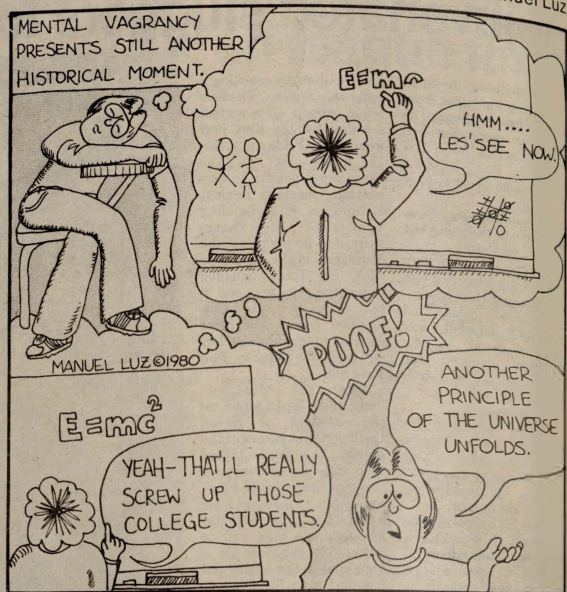 Luz
MENTAL VAGRANCY
PRESENTS STILL ANOTHER
HISTORICAL MOMENT.
E=m
HMM....
LES'SEE NOW.
MANUEL LUZ©1980
POOF!
E=mc²
YEAH-THAT'LL REALLY
SCREW UP THOSE
COLLEGE STUDENTS.
ANOTHER
PRINCIPLE
OF THE UNIVERSE
UNFOLDS.